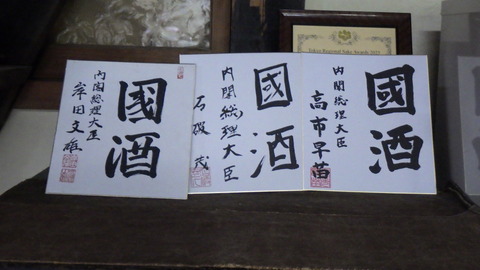 Tokyo Regional Sake Awards
國酒
内閣総理大臣
岸田文雄
國酒
内閣総理大臣
石破茂
國酒
内閣総理大臣
高市早苗